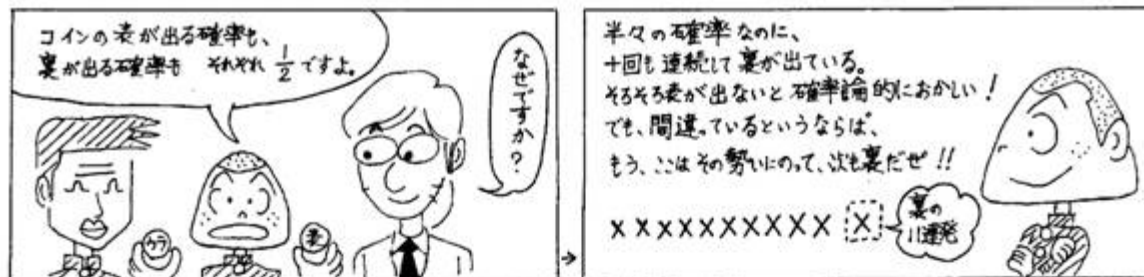 コインの表が出る確率も、
裏が出る確率も それぞれ 1/2 ですよ。
なぜですか?
ウラ
表
半々の確率なのに、
十回も連続して裏が出ている。
そろそろ表が出ないと確率論的におかしい!
でも、間違っているというならば、
もう、ここはその勢いにのって、次も裏だぜ!!
××××××××××
×
裏の
11連発
→